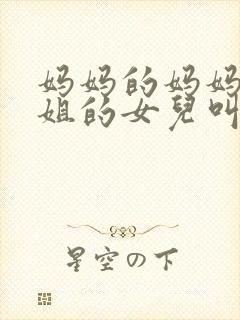 妈妈的妈妈
姐的女兒叫
星空の下